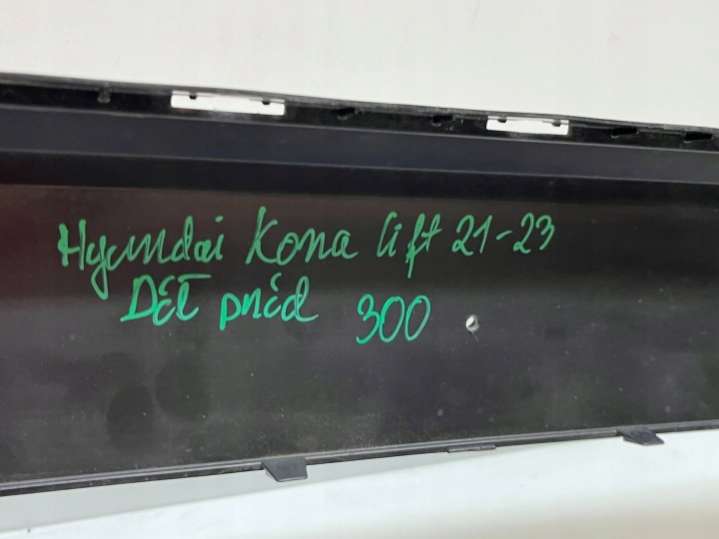 Hyundai Kona lift 21-23
DÓŁ przód 300